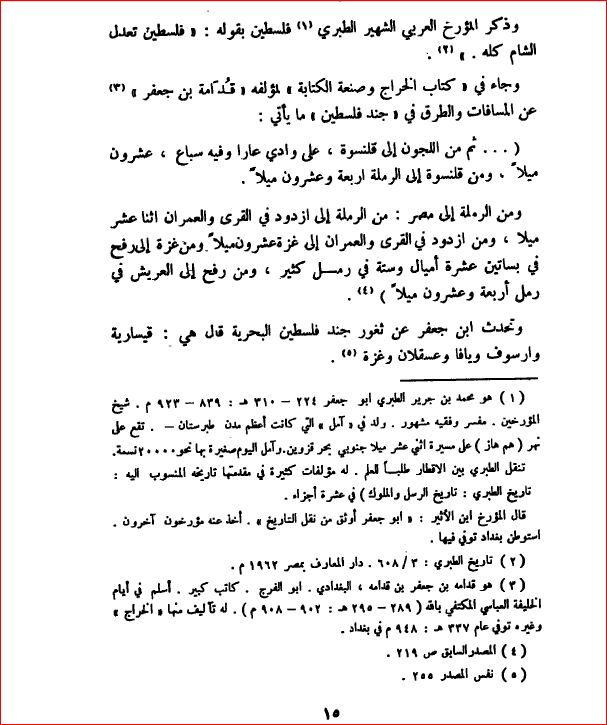 وذكر المؤرخ العربي الشهير الطبري (١) فلسطين بقوله : « فلسطين تعدل
الشام كله . » (٢) .
وجاء في « كتاب الخراج وصنعة الكتابة » لمؤلفه « قُدَامة بن جعفر » (٣)
عن المسافات والطرق في « جند فلسطين » ما يأتي :
( . . . ثم من اللجون إلى قلنسوة ، على وادي عارا وفيه سباع ، عشرون
ميلاً ، ومن قلنسوة إلى الرملة اربعة وعشرون ميلاً .
ومن الرملة إلى مصر : من الرملة إلى ازدود في القرى والعمران اثنا عشر
ميلا ، ومن ازدود في القرى والعمران إلى غزة عشرون ميلاً ومن غزة إلى رفح
في بساتين عشرة أميال وستة في رمل كثير ، ومن رفح إلى العريش في
رمل أربعة وعشرون ميلاً ) (٤) .
وتحدث ابن جعفر عن ثغور جند فلسطين البحرية قال هي : قيسارية
وارسوف ويافا وعسقلان وغزة (٥) .
( ١ ) هو محمد بن جرير الطبري ابو جعفر ٢٢٤ – ٣١٠ هـ : ٨٣٩ – ٩٢٣ م . شيخ
المؤرخين . مفسر وفقيه مشهور . ولد في « آمل » التي كانت أعظم مدن طبرستان – . تقع على
نهر ( هم هاز ) على مسيرة اثني عشر ميلا جنوبي بحر قزوين . وآمل اليوم صغيرة بها نحو ٢٠٠٠٠ نسمة.
تنقل الطبري بين الاقطار طلبـاً للعلم . له مؤلفات كثيرة في مقدمتها تاريخه المنسوب اليه :
تاريخ الطبري : تاريخ الرسل والملوك ) في عشرة أجزاء .
قال المؤرخ ابن الأثير : « ابو جعفر أوثق من نقل التاريخ » . أخذ عنه مؤرخون آخرون .
استوطن بغداد توفي فيها .
( ٢ ) تاريخ الطبري : ٣ / ٦٠٨ . دار المعارف بمصر ١٩٦٢ م .
( ٣ ) هو قدامه بن جعفر بن قدامه ، البغدادي . ابو الفرج . كاتب كبير . أسلم في أيام
الخليفة العباسي المكتفي بالله ( ٢٨٩ – ٢٩٥ هـ : ٩٠٢ – ٩٠٨ م ) . له تآليف منها « الخراج »
وغيره توفي عام ٣٣٧ هـ : ٩٤٨ م في بغداد .
( ٤ ) المصدر السابق ص ٢١٩ .
( ٥ ) نفس المصدر ٢٥٥ .
١٥